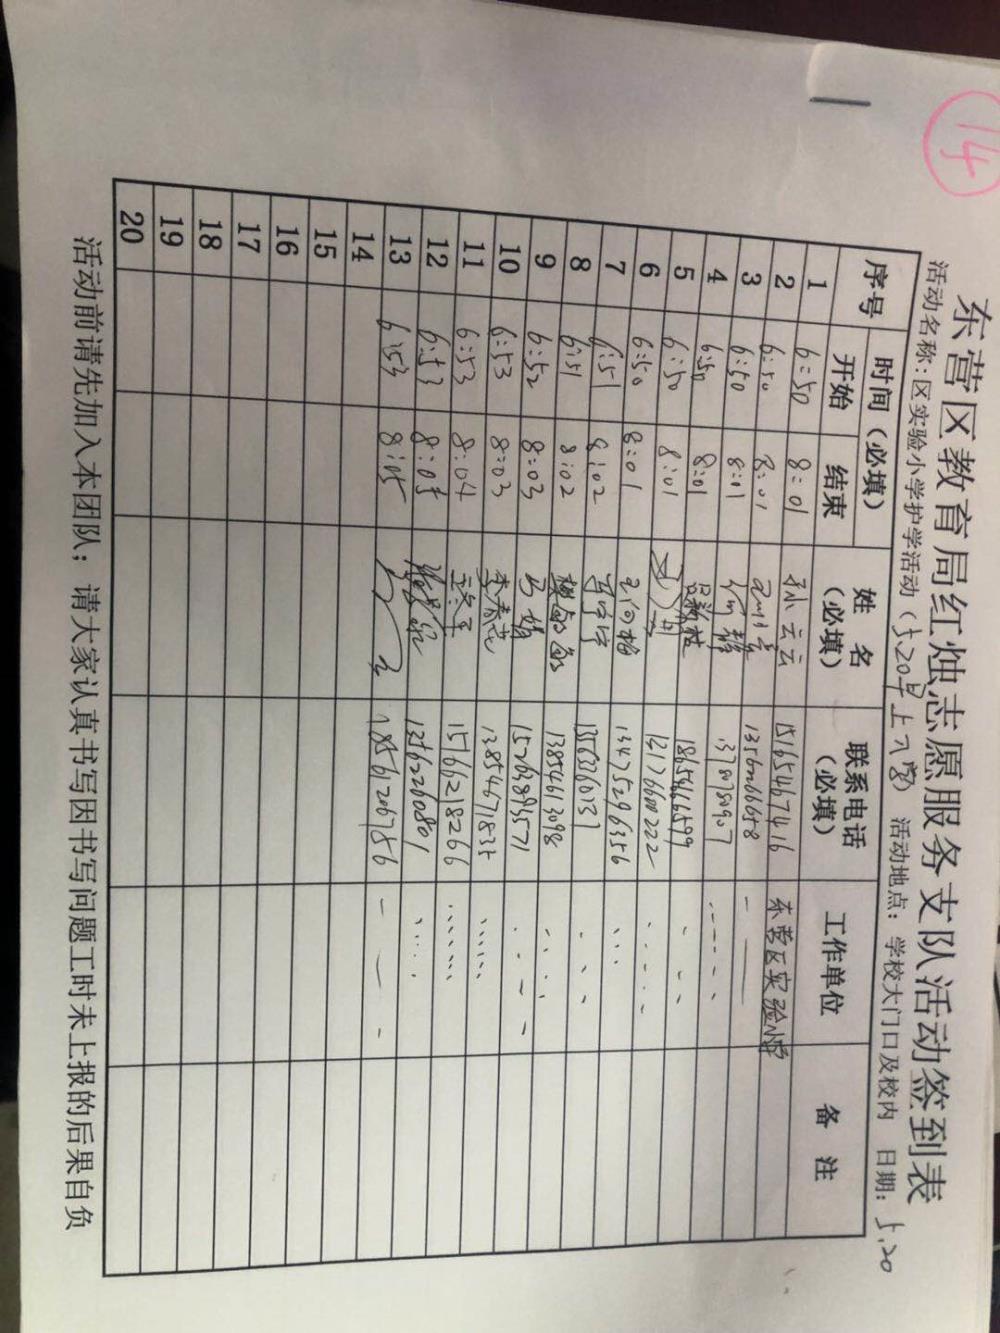 14
东营区教育局红烛志愿服务支队活动签到表
活动名称：区实验小学护学活动（5.20早上入学） 活动地点：学校大门口及校内 日期：5.20
序号 时间（必填） 姓名（必填） 联系电话（必填） 工作单位 备注
开始 结束
1 6:50 8:01 孙云云 15165467416 东营区实验小学
2 6:50 8:01 13561066658
3 6:50 8:01
4 6:50 8:01 18654616599
5 6:50 8:01
6 6:50 8:01 13475296356
7 6:51 8:02
8 6:51 8:02 13854613098
9 6:52 8:03 15263893571
10 6:53 8:03 李春花 13854671835
11 6:53 8:04 15166218266
12 6:53 8:05 13562260801
13 6:53 8:05 18561206786
14
15
16
17
18
19
20
活动前请先加入本团队；请大家认真书写因书写问题工时未上报的后果自负